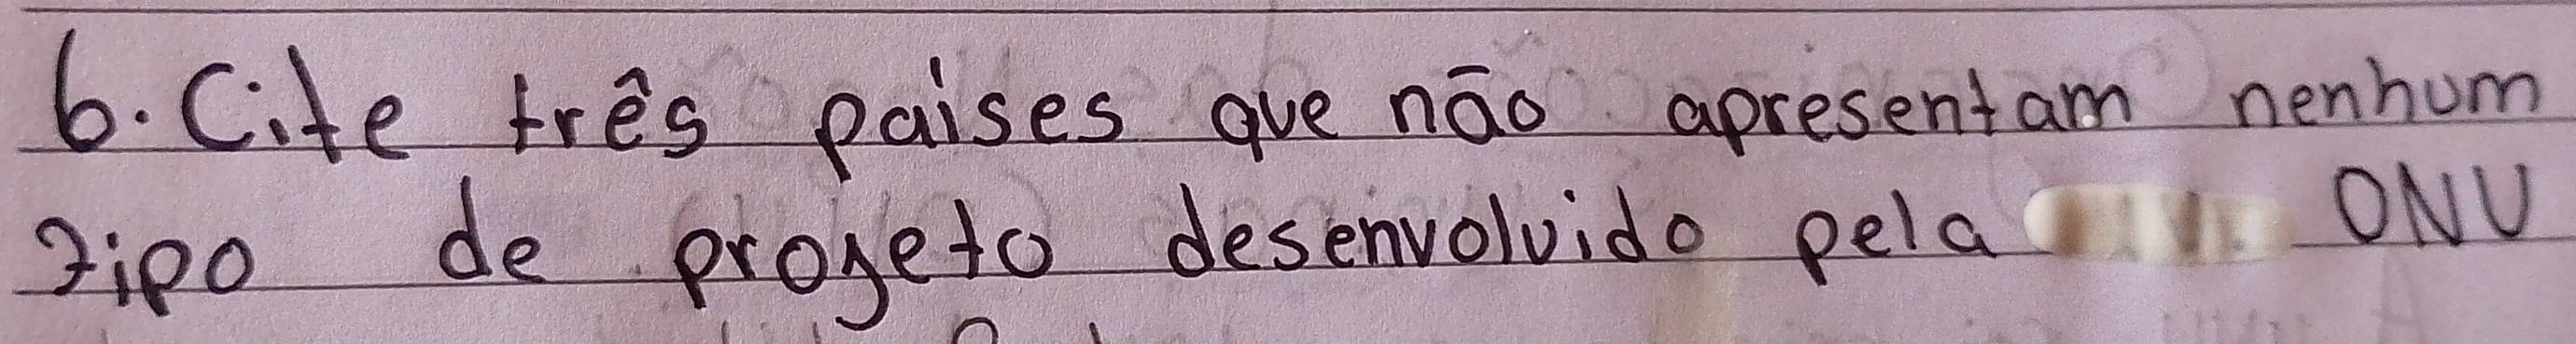 6. Cite três paises que não apresentam nenhum
tipo de projeto desenvolvido pela ONU